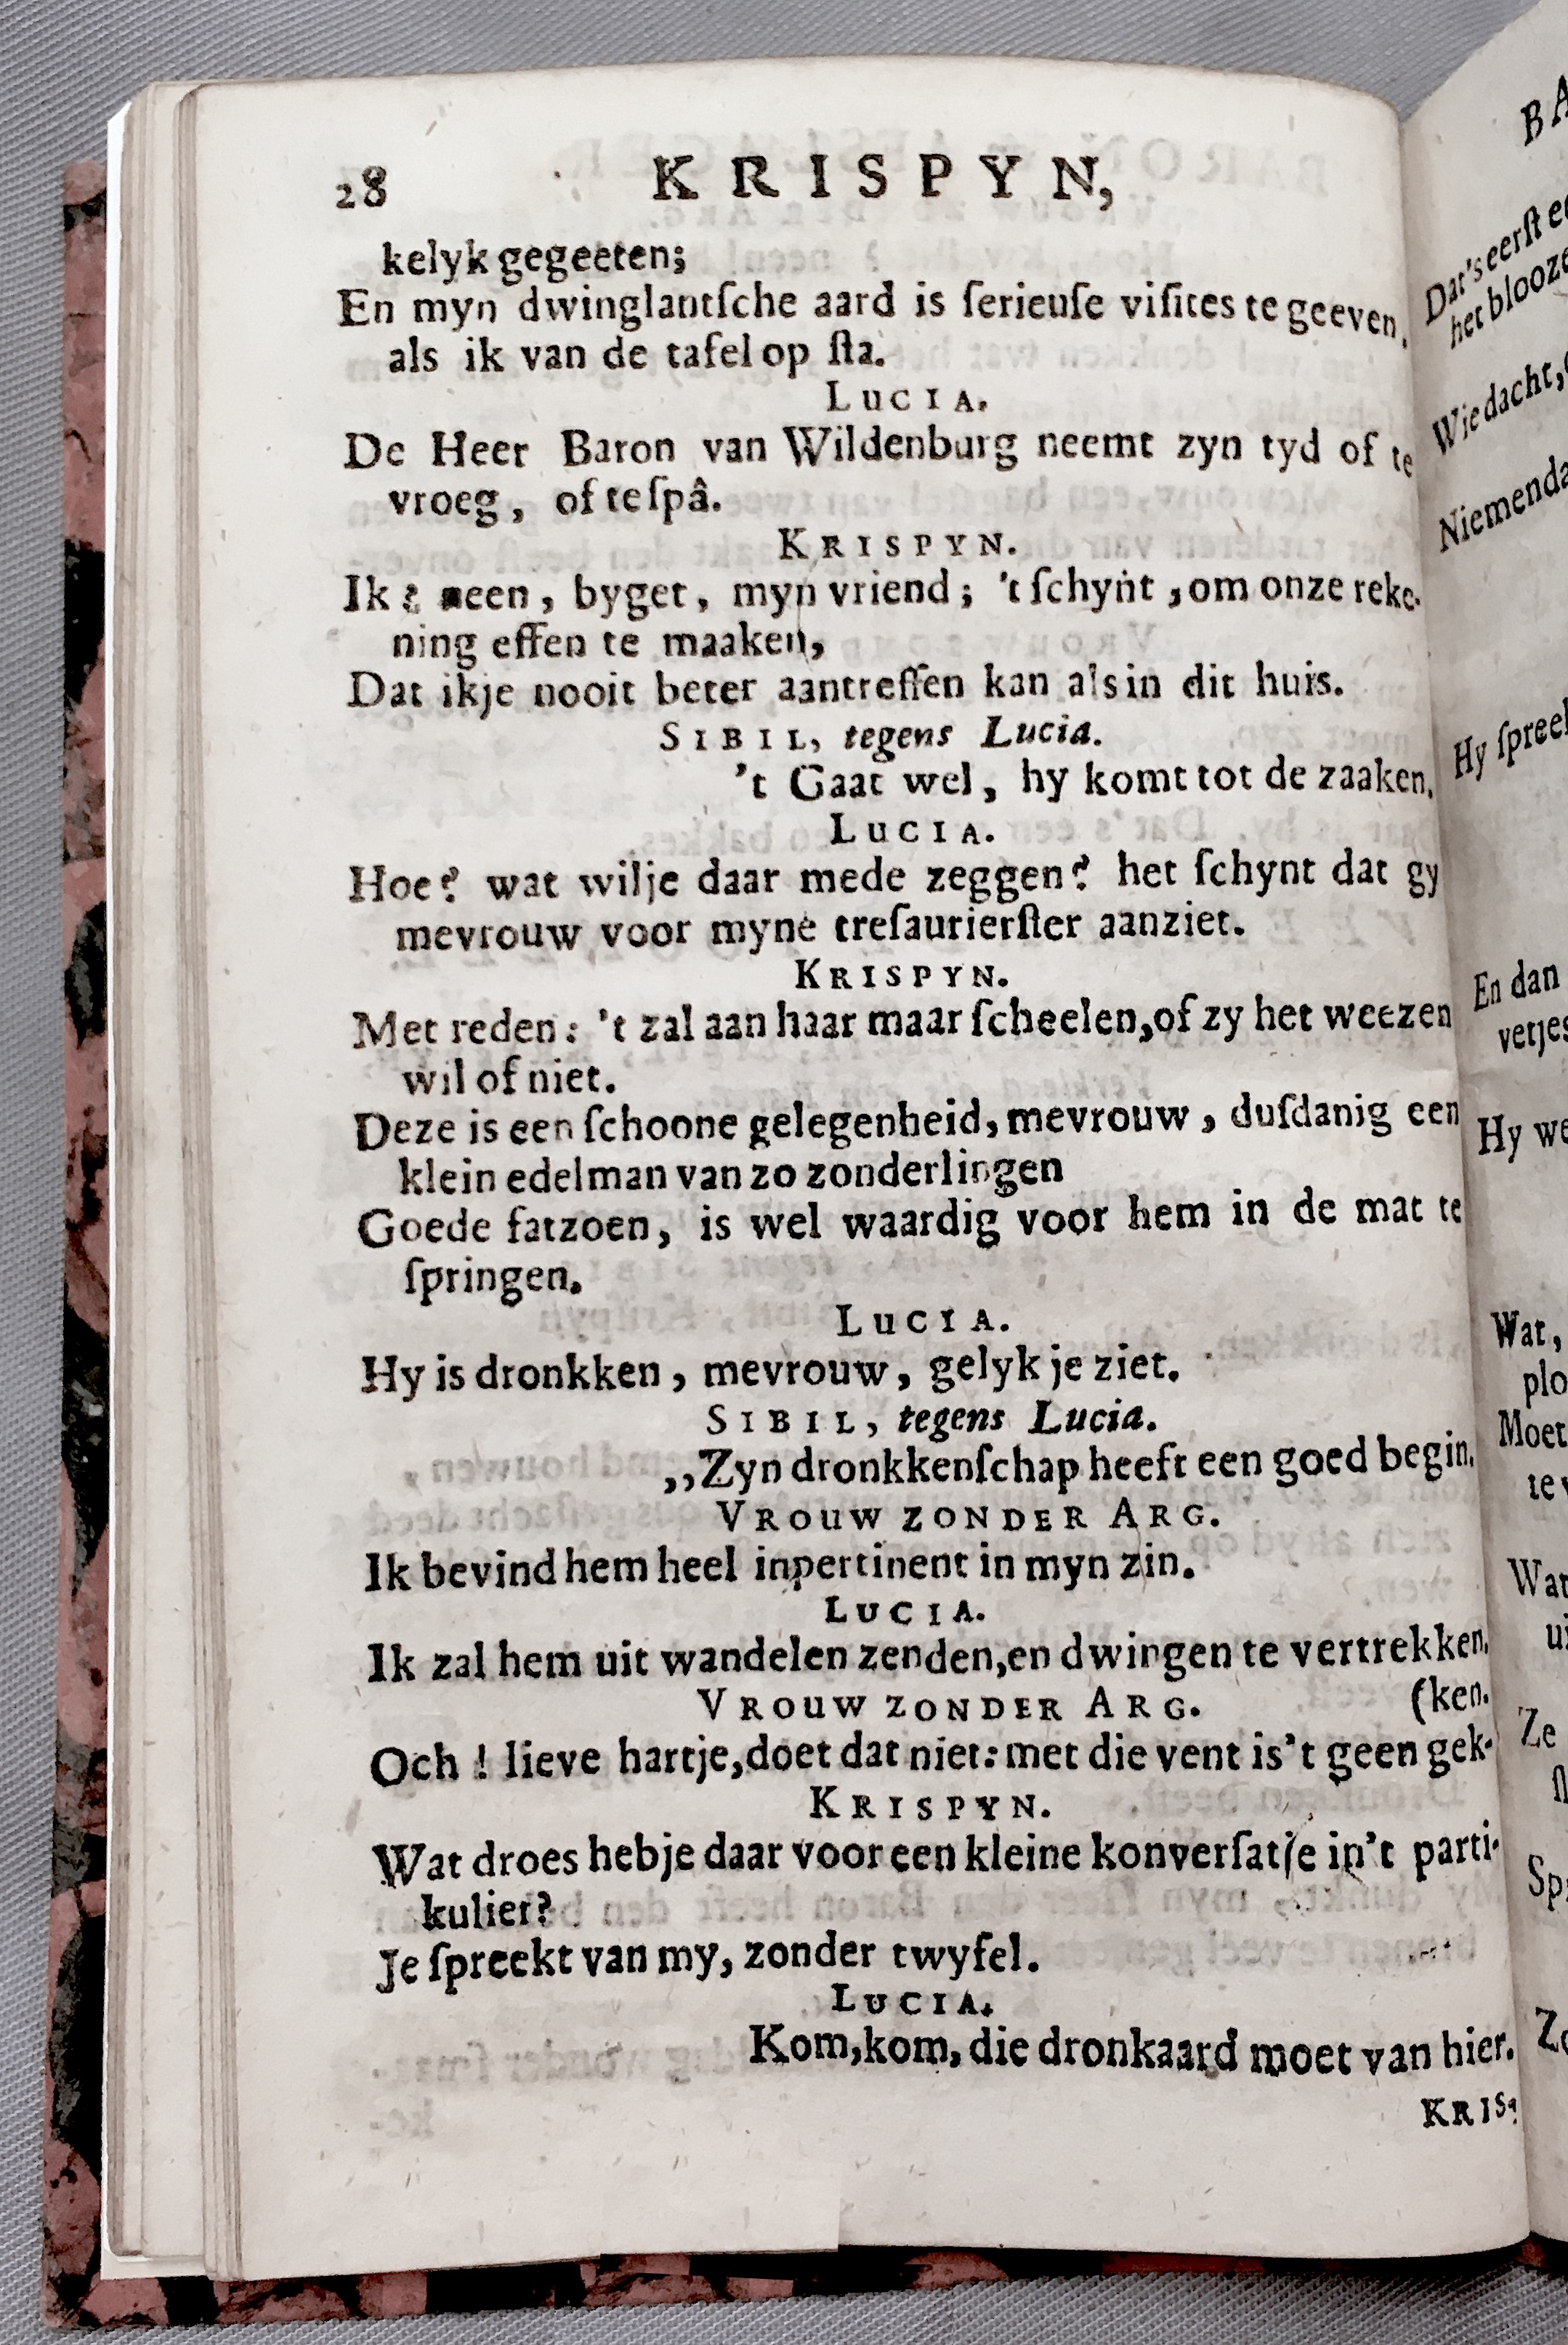 28 KRISPYN,
kelyk gegeeten;
En myn dwinglantſche aard is ſerieuſe viſites te geeven,
als ik van de tafel op ſta.
LUCIA.
De Heer Baron van Wildenburg neemt zyn tyd of te
vroeg, of te ſpâ.
KRISPYN.
Ik neen, byget, myn vriend; 't ſchynt, om onze reke-
ning effen te maaken,
Dat ikje nooit beter aantreffen kan als in dit huis.
SIBIL, tegens Lucia.
't Gaat wel, hy komt tot de zaaken.
LUCIA.
Hoe? wat wilje daar mede zeggen? het ſchynt dat gy
mevrouw voor myne treſaurierſter aanziet.
KRISPYN.
Met reden: 't zal aan haar maar ſcheelen, of zy het weezen
wil of niet.
Deze is een ſchoone gelegenheid, mevrouw, duſdanig een
klein edelman van zo zonderlingen
Goede fatzoen, is wel waardig voor hem in de mat te
ſpringen.
LUCIA.
Hy is dronkken, mevrouw, gelyk je ziet.
SIBIL, tegens Lucia.
,,Zyn dronkkenſchap heeft een goed begin.
VROUW ZONDER ARG.
Ik bevind hem heel inpertinent in myn zin.
LUCIA.
Ik zal hem uit wandelen zenden, en dwingen te vertrekken.
VROUW ZONDER ARG. (ken.
Och! lieve hartje, doet dat niet: met die vent is 't geen gek-
KRISPYN.
Wat droes hebje daar voor een kleine konverſatie in 't parti-
kulier?
Je ſpreekt van my, zonder twyfel.
LUCIA.
Kom, kom, die dronkaard moet van hier.
KRIS-
BA
Dat's eerſt
het blooze
Wie dacht,
Niemenda
Hy ſpreek
En dan
vetjes
Hy we
Wat,
plo
Moet
te
Wat
Ze